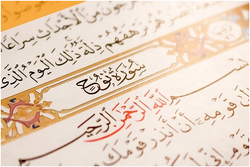 يَخْرُجُونَ مِنَ الْأَجْدَاثِ سِرَاعًا
تَرْهَقُهُمْ ذِلَّةٌ ذَٰلِكَ الْيَوْمُ الَّذِي
سُورَةُ نُوحٍ
اللَّهِ الرَّحْمَٰنِ الرَّحِيمِ
قَوْمِهِ أَنْ أَنذِرْ قَوْمَكَ